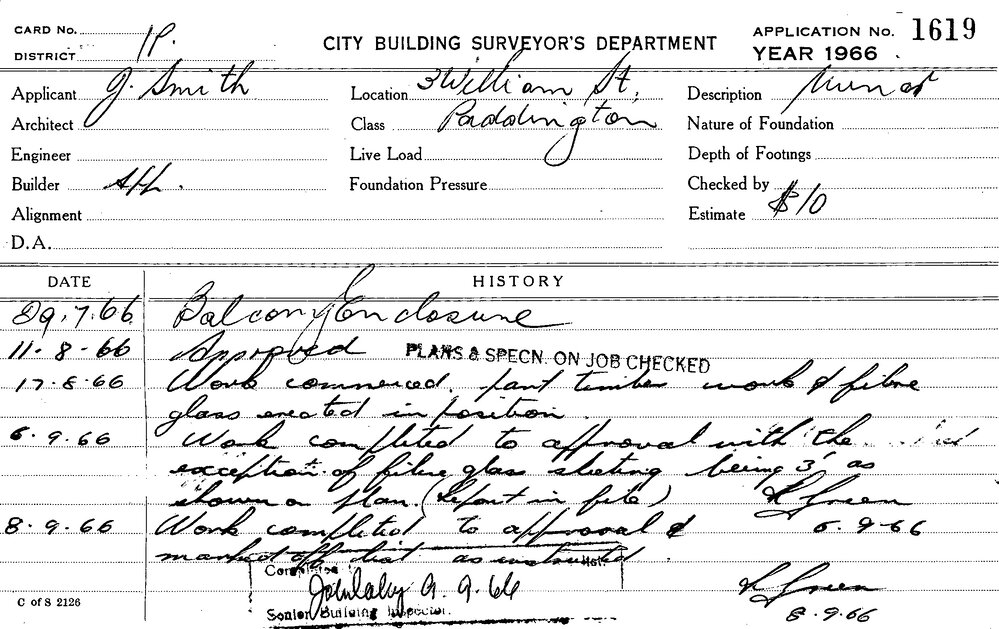 CARD No. 1P.
DISTRICT
CITY BUILDING SURVEYOR'S DEPARTMENT
APPLICATION No. 1619
YEAR 1966
Applicant J. Smith
Location 3 William St,
Description
Architect
Class Paddington
Nature of Foundation
Engineer
Live Load
Depth of Footings
Builder App.
Foundation Pressure
Checked by
Alignment
Estimate $10
D.A.
DATE HISTORY
29.7.66 Balcony Enclosure
11-8-66 Approved PLANS & SPECN. ON JOB CHECKED
17-8-66 Work commenced. part timber work & fibre
glass erected in position.
6.9.66 Work completed to approval with the
exception of fibre glass sheeting being 3' as
shown on plan. (Report in file) Green
8.9.66 Work completed to approval & 6.9-66
marked off list as instructed.
Completed List.
9.9.66
Senior Building Inspector.
Green
8.9.66
C of S 2126